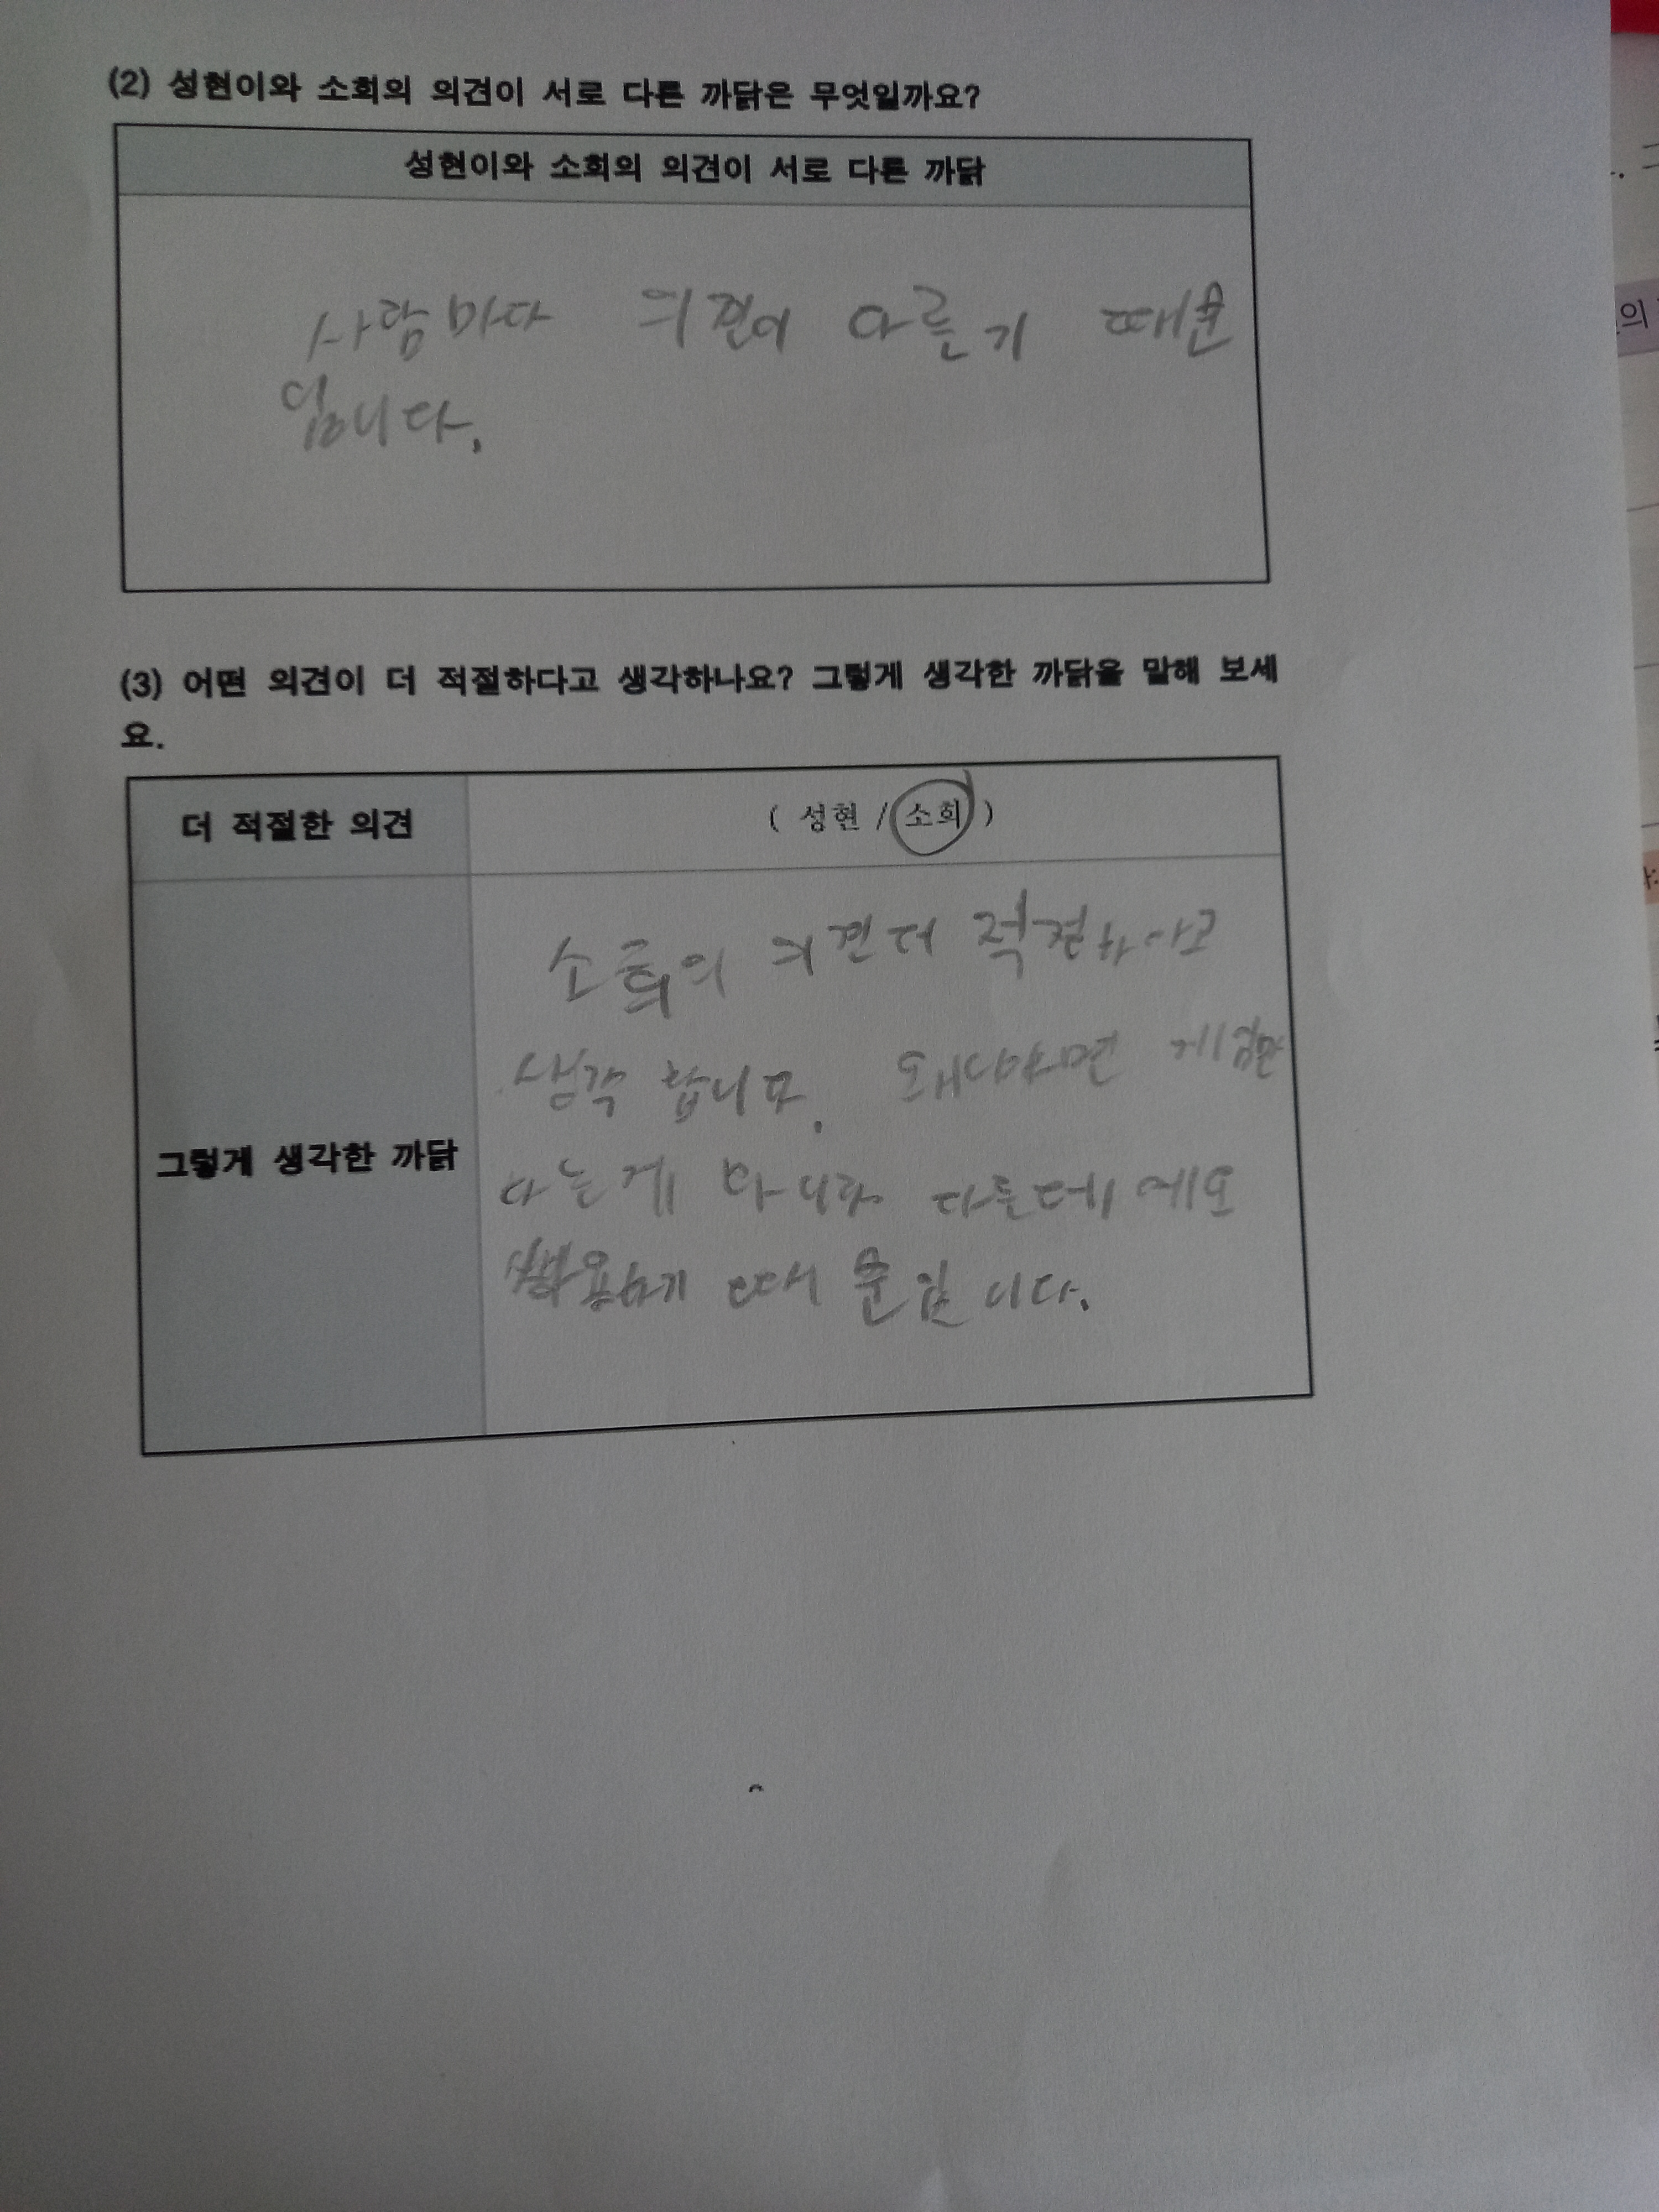 (2) 성현이와 소희의 의견이 서로 다른 까닭은 무엇일까요?
성현이와 소희의 의견이 서로 다른 까닭
사람마다 의견이 다른기 때문
입니다.
(3) 어떤 의견이 더 적절하다고 생각하나요? 그렇게 생각한 까닭을 말해 보세
요.
더 적절한 의견
( 성현 / 소희 )
그렇게 생각한 까닭
소희의 의견더
생각 합니다. 왜냐하면
다는게 아니라 다른데
때문입니다.
의